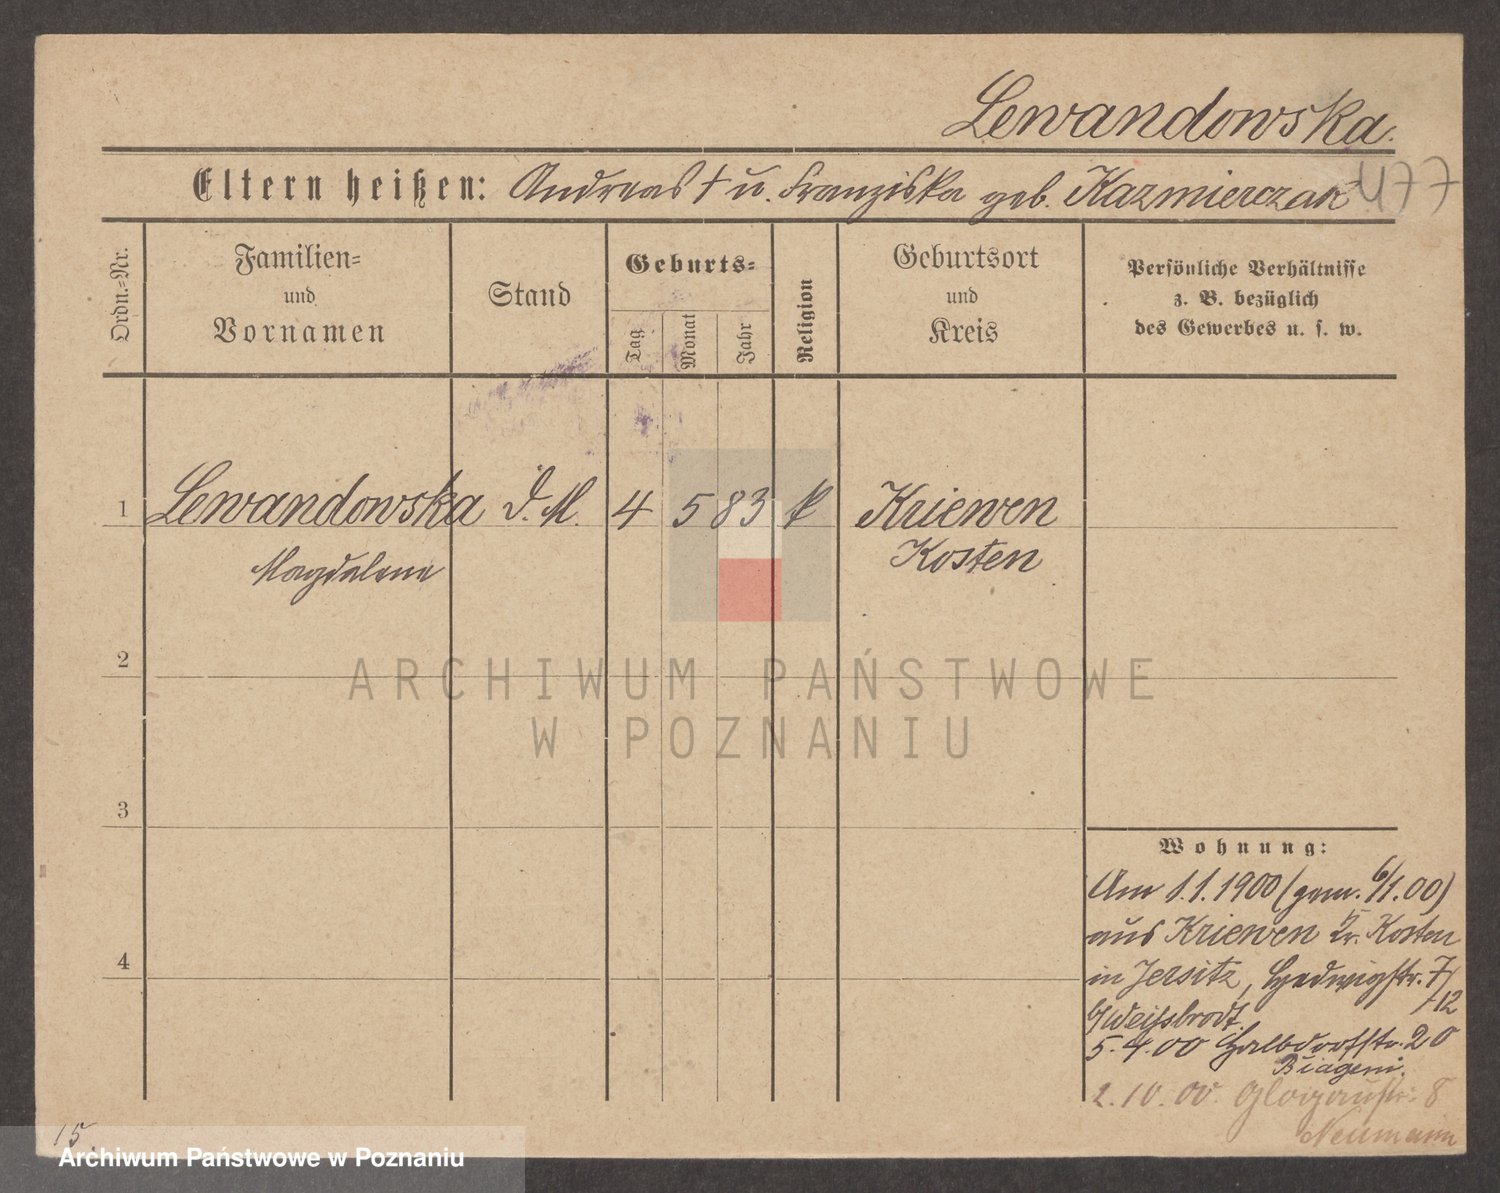 Lewandowska.
Eltern heißen: Andreas † u. Franziska geb. Kazmierczak
477
Ordn.-Nr.
Familien-
und
Vornamen
Stand
Geburts-
Tag
Monat
Jahr
Religion
Geburtsort
und
Kreis
Persönliche Verhältnisse
z. B. bezüglich
des Gewerbes u. s. w.
1 Lewandowska D. M. 4 5 83 k Kriewen
Magdalena Kosten
2
ARCHIWUM PAŃSTWOWE
W POZNANIU
3
Wohnung:
Am 1.1.1900 (gem. 6/1.00)
aus Kriewen Kr. Kosten
4
in Jersitz, Hedwigstr. 7/
12
b/Weissbrodt.
5.4.00 Halbdorfstr. 20
Biagem.
2.10.00. Glogaustr. 8
Neumann
15.
Archiwum Państwowe w Poznaniu